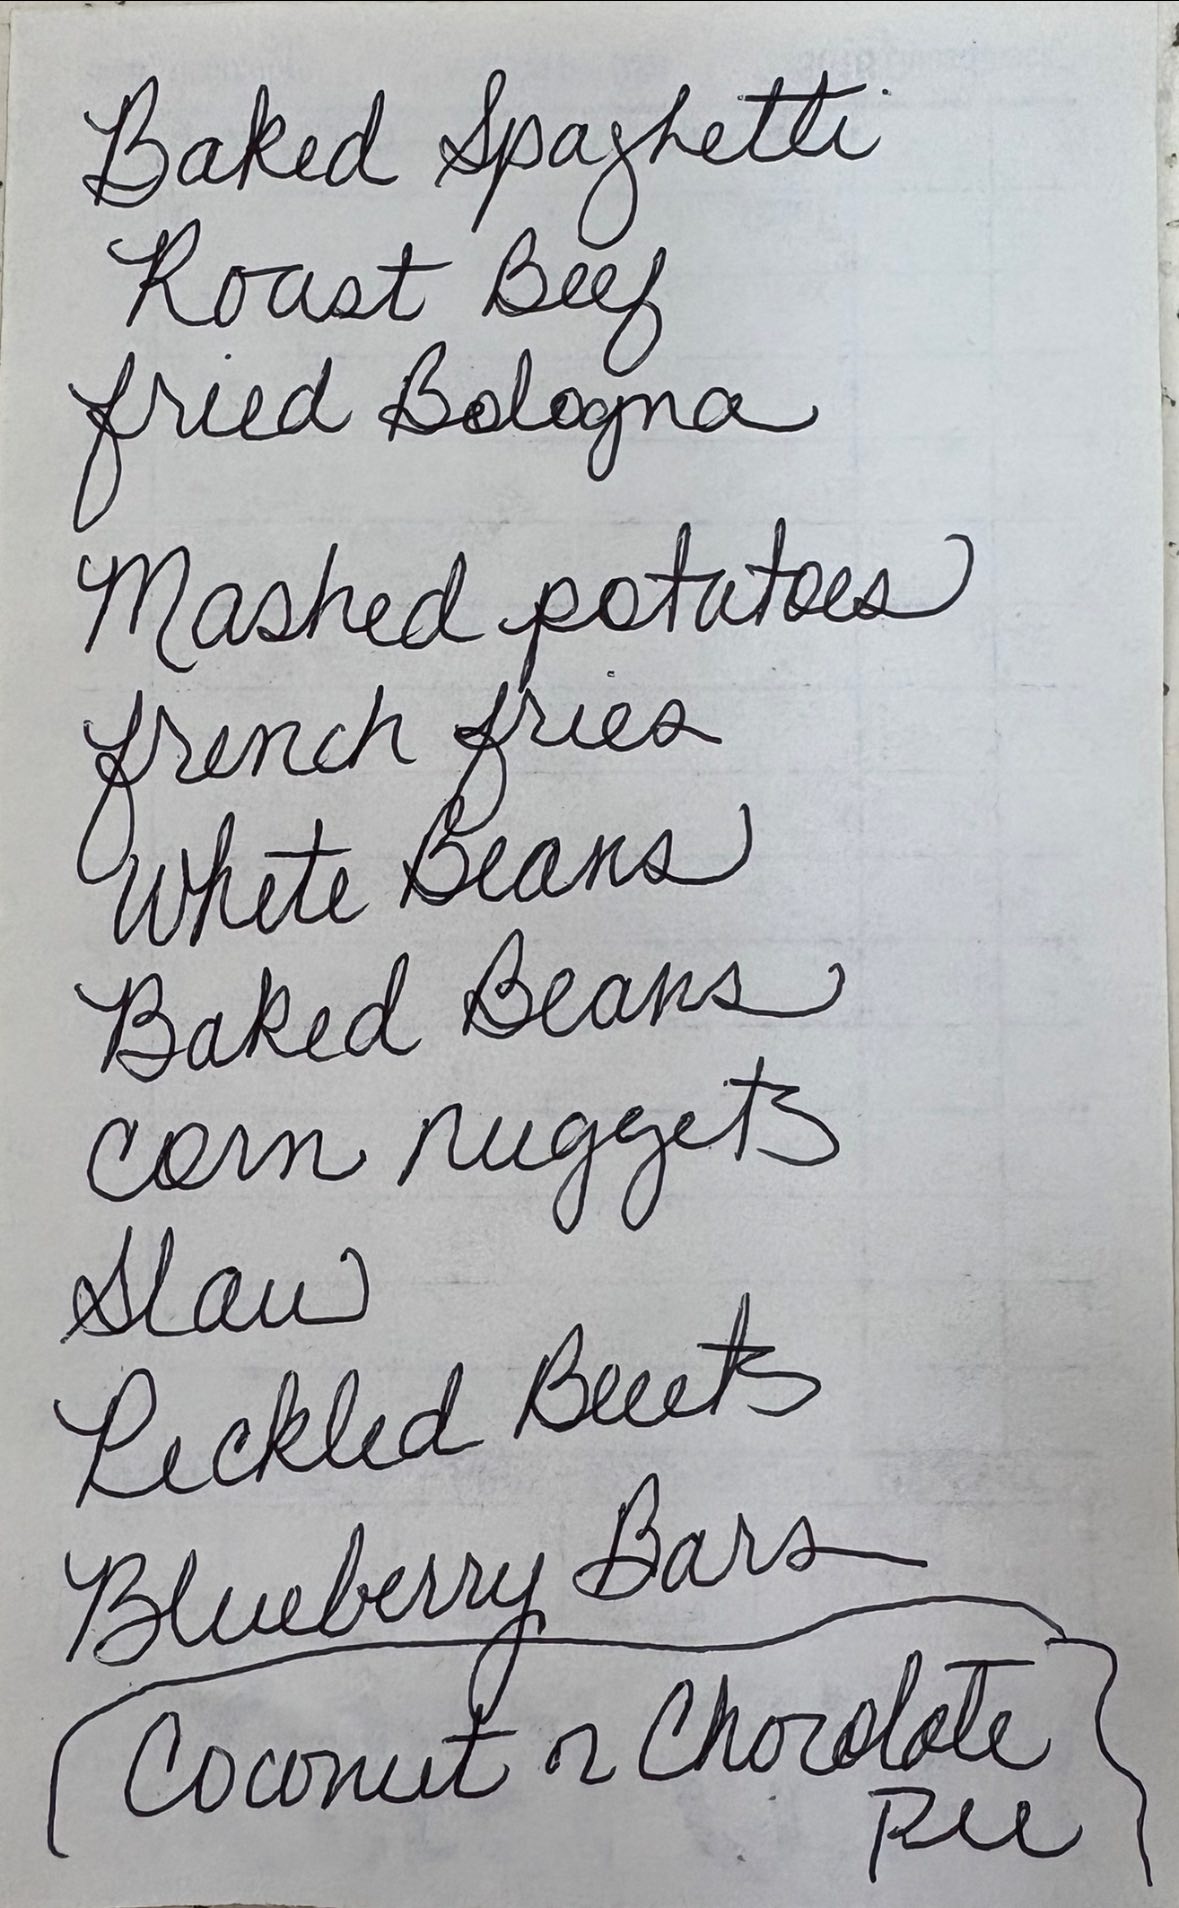 Baked Spaghetti
Roast Beef
fried Bologna
Mashed potatoes
french fries
White Beans
Baked Beans
corn nuggets
Slaw
Pickled Beets
Blueberry Bars
Coconut or Chocolate
Pie